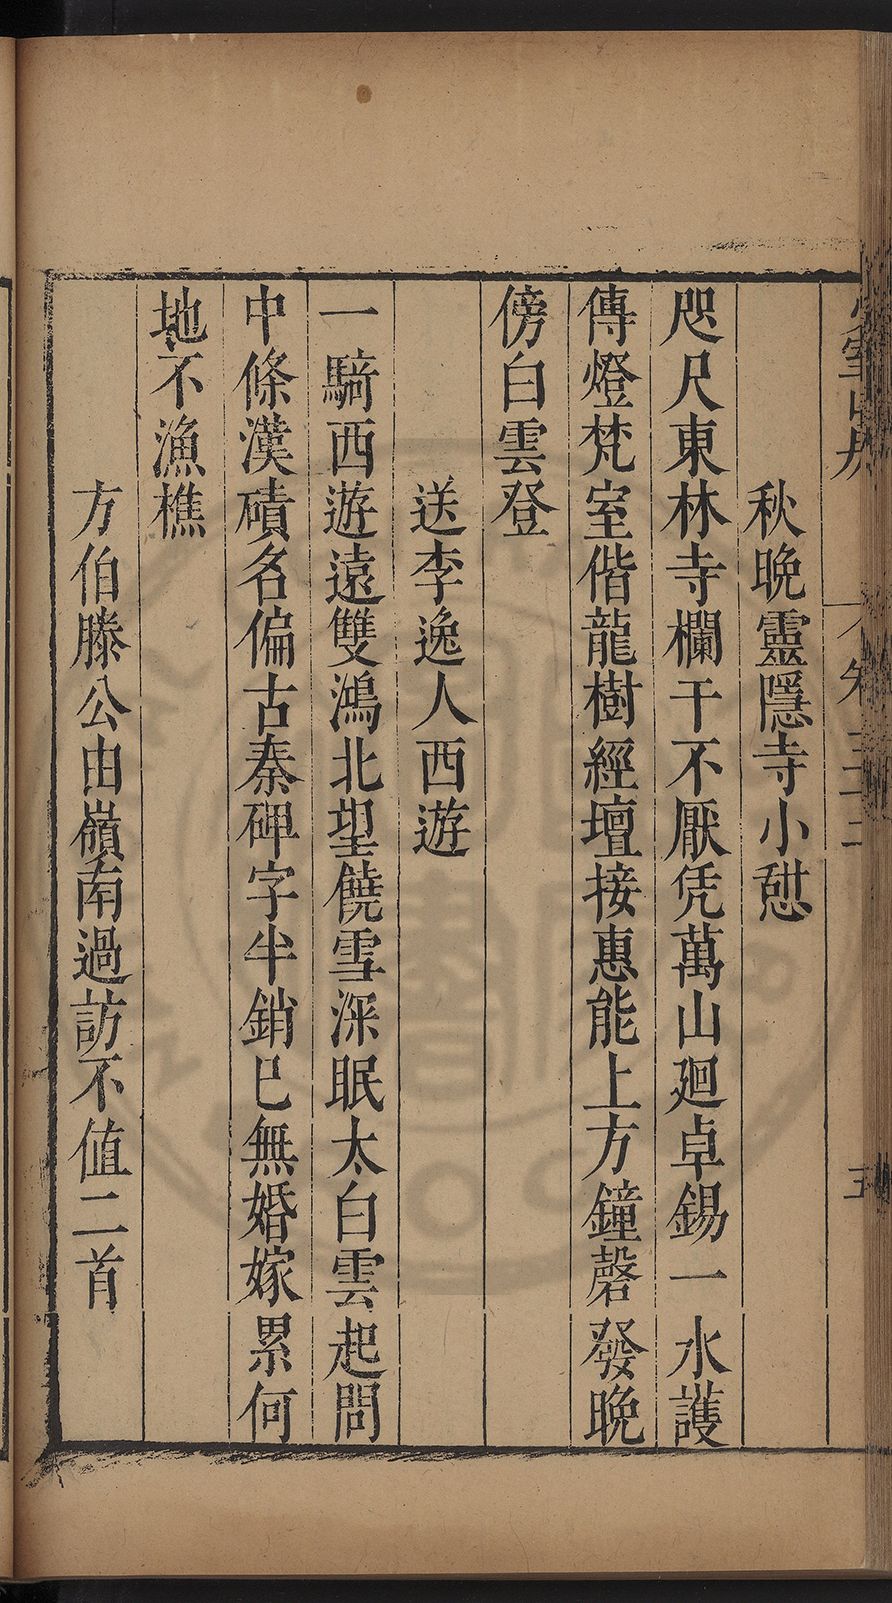 少室山房
卷三十三
五
秋晚靈隱寺小憇
咫尺東林寺欄干不厭凭萬山廻卓錫一水護
傳燈梵室偕龍樹經壇接惠能上方鐘磬發晚
傍白雲登
送李逸人西遊
一騎西遊遠雙鴻北望饒雪深眠太白雲起問
中條漢磧名偏古秦碑字半銷已無婚嫁累何
地不漁樵
方伯滕公由嶺南過訪不值二首